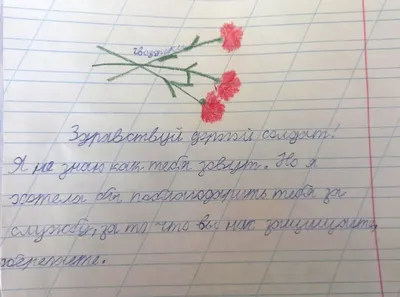 гвоздики
Здравствуй дорогой солдат!
Я не знаю как тебя зовут. Но я
хотела бы поблагодарить тебя за
службу, за то что вы нас защищаете,
оберегаете.